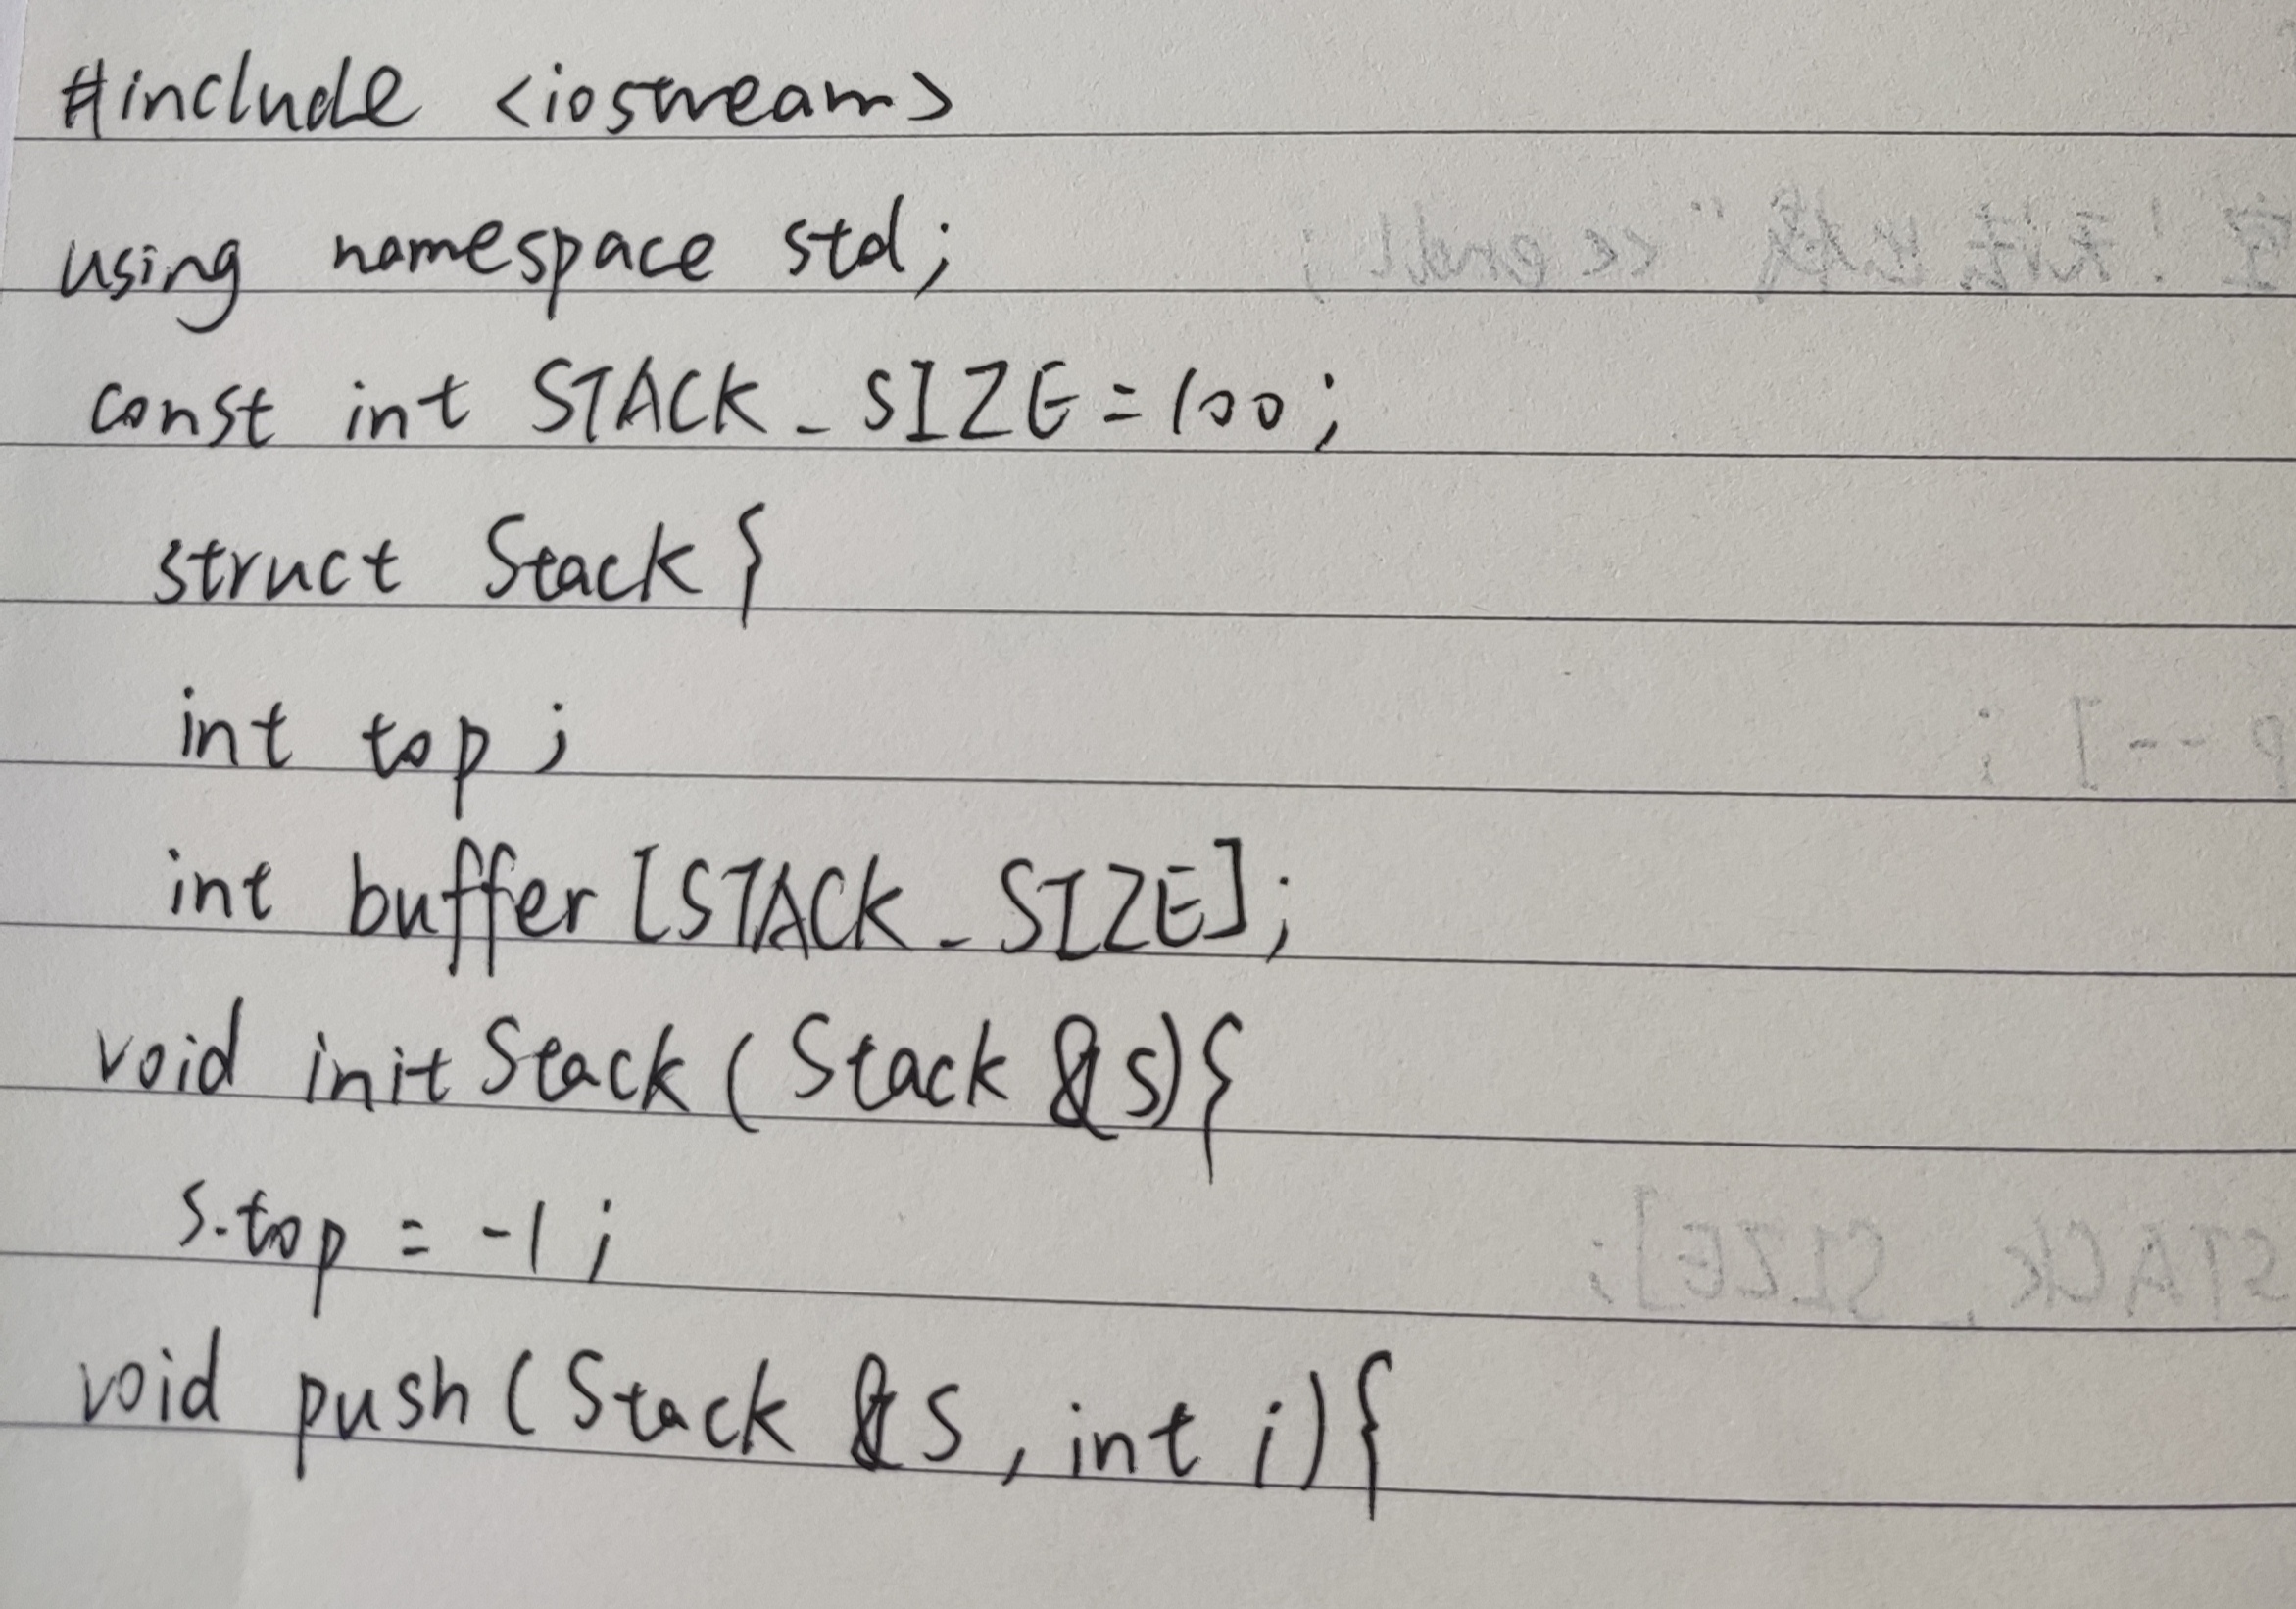 #include <iostream>
using namespace std;
const int STACK_SIZE=100;
struct Stack{
int top;
int buffer[STACK_SIZE];
void initStack(Stack &s){
s.top = -1;
void push(Stack &s, int i){